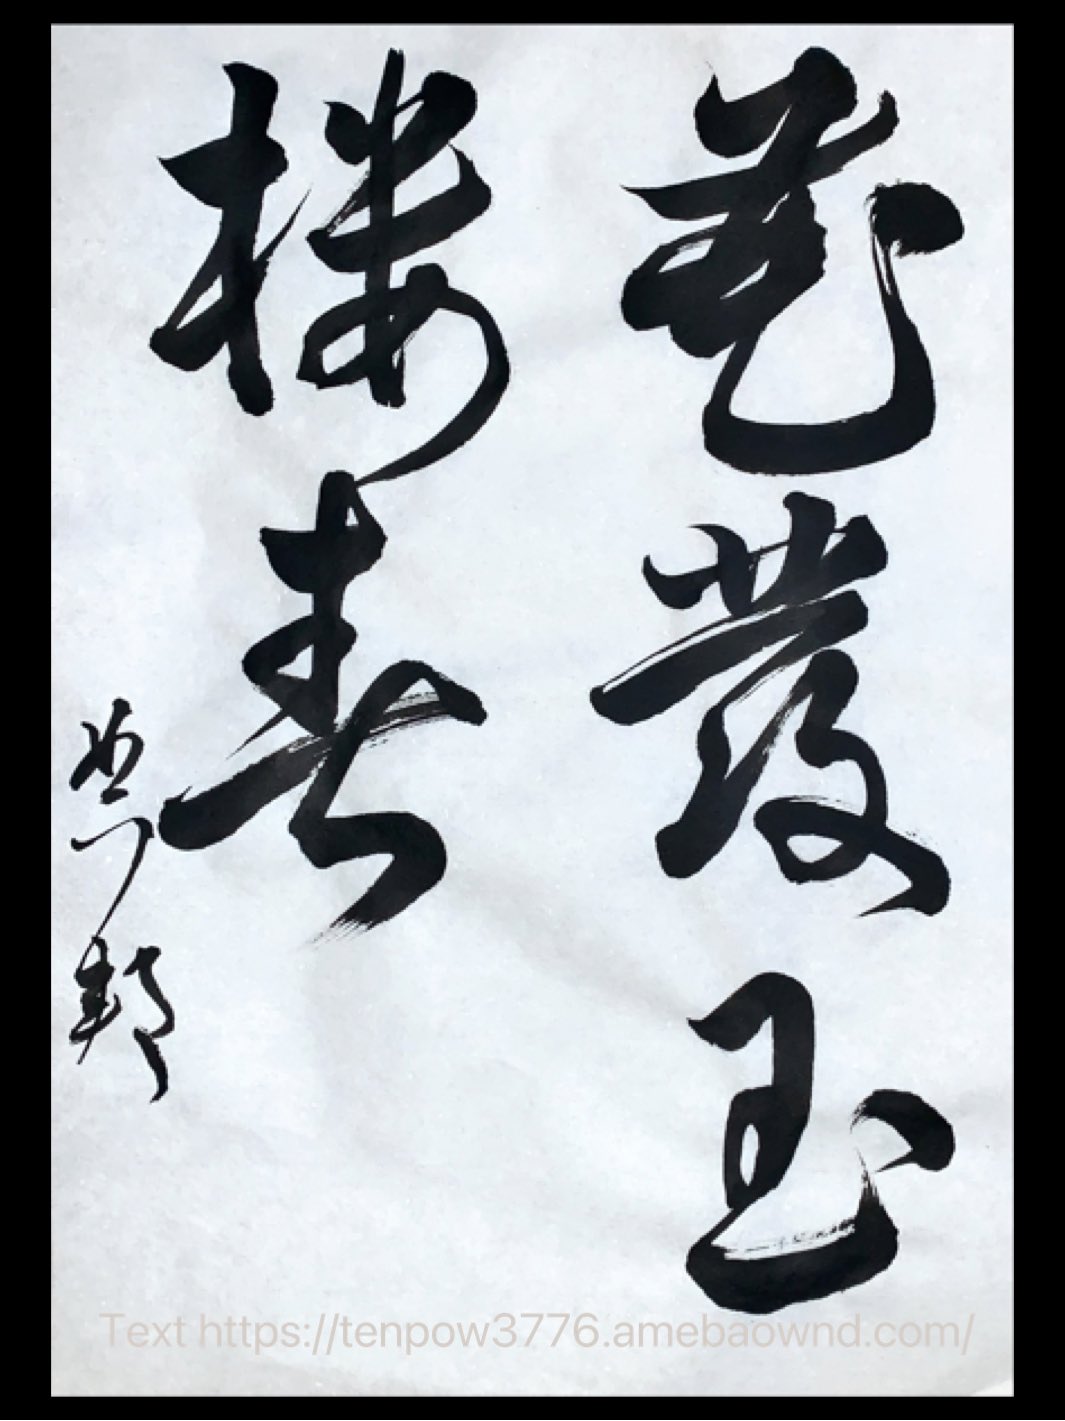 花發玉
樓春
Text https://tenpow3776.amebaownd.com/